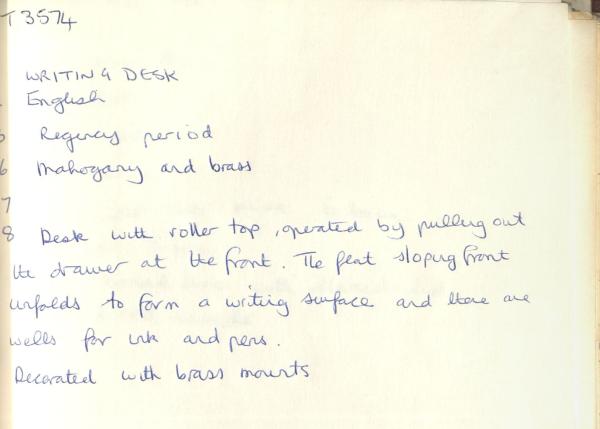 T3574
WRITING DESK
English
Regency period
6 Mahogany and brass
7
8 Desk with roller top, operated by pulling out
the drawer at the front. The flat sloping front
unfolds to form a writing surface and there are
wells for ink and pens.
Decorated with brass mounts